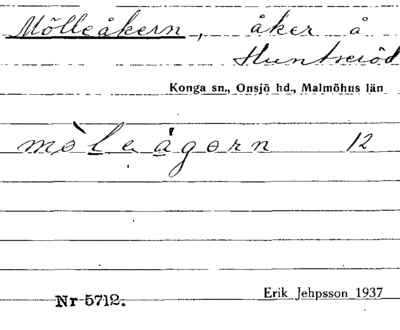 Mölleåkern, åker å
Huntseröd
Konga sn., Onsjö hd., Malmöhus län
mòleágərn 12
Nr 5712.
Erik Jehpsson 1937